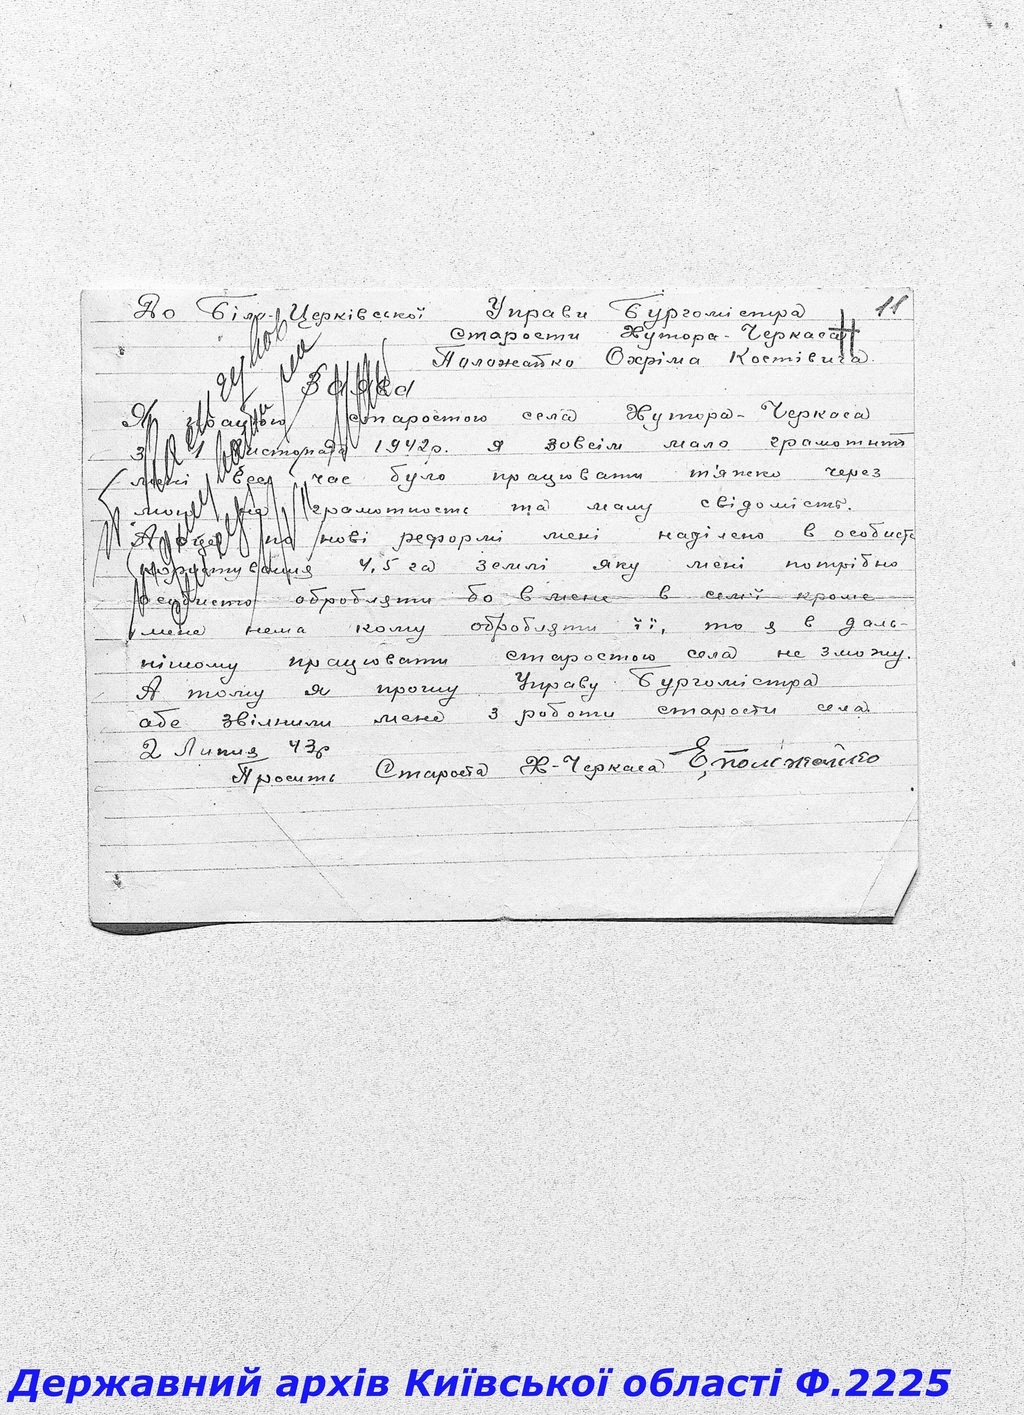 До Біло-Церківської Управи Бургомістра 11
Старости Хутора-Черкаса
Положайко Охріма Костівича
Заява
Я працюю старостою села Хутора-Черкаса
з 1 листопада 1942р. я зовсім мало грамотний
мені весь час було працювати тяжко через
мою не грамотність та малу свідомість.
А це по нові реформі мені наділено в особисте
користування 4,5 га землі яку мені потрібно
особисто обробляти бо в мене в семї кроме
мене нема кому обробляти її, то я в даль-
нішому працювати старостою села не зможу.
А тому я прошу Управу Бургомістра
абе звілнили мене з роботи старости села
2 Липня 43р
Просить Староста Х-Черкаса
Державний архів Київської області Ф.2225